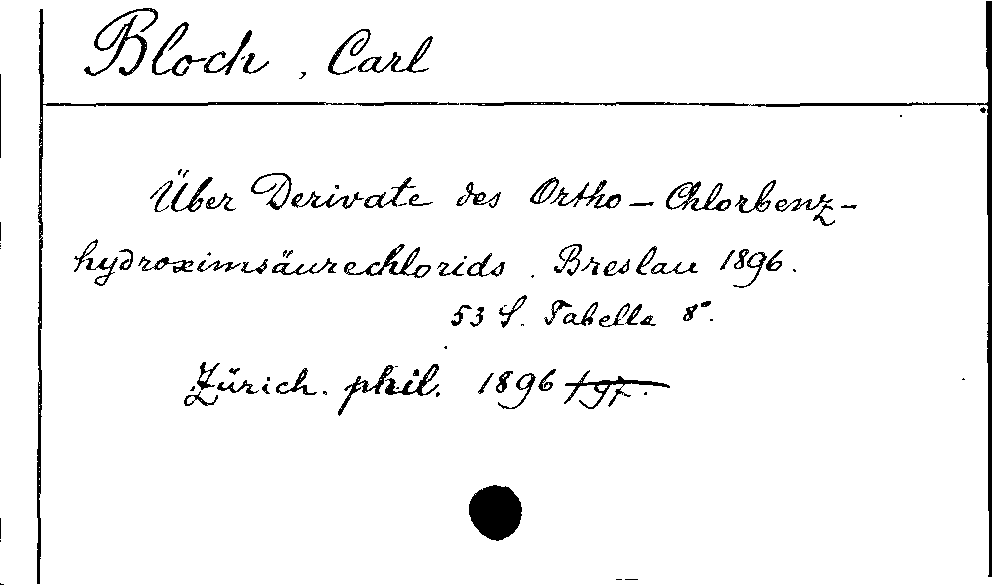 Bloch, Carl
Über Derivate des Ortho-Chlorbenz-
hydroximsäurechlorids. Breslau 1896.
53 S. Tabelle 8°.
Zürich. phil. 1896 /97.